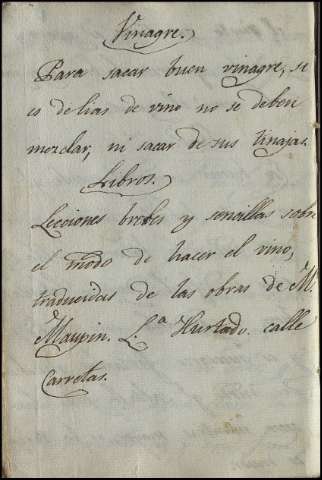 Vinagre.
Para sacar buen vinagre, si
es de lias de vino no se deben
mezclar, ni sacar de sus tinajas.
Libros.
Lecciones brebes y sencillas sobre
el modo de hacer el vino,
traducidas de las obras de M.
Maupin. L.ª Hurtado. calle
Carretas.